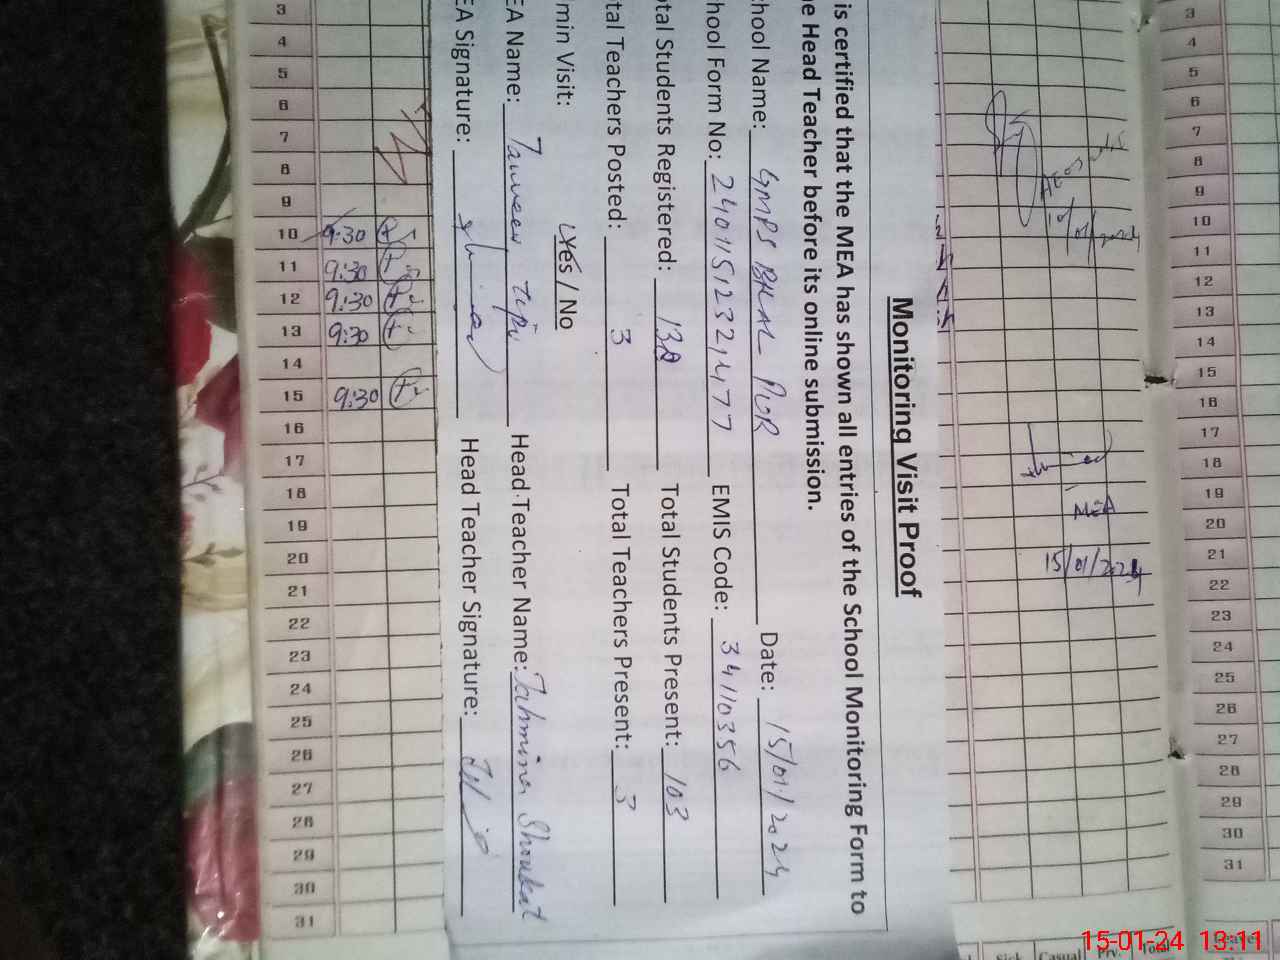 Monitoring Visit Proof
is certified that the MEA has shown all entries of the School Monitoring Form to
e Head Teacher before its online submission.
hool Name: GMPS BILAL PUR Date: 15/01/2024
hool Form No: EMIS Code: 34110356
tal Students Registered: Total Students Present: 103
tal Teachers Posted: 3 Total Teachers Present: 3
min Visit: Yes / No
EA Name: Tanveer Tipu Head Teacher Name: Tahmina Shoukat
EA Signature: Head Teacher Signature:
3
4
5
6
7
8
9
10
11
12
13
14
15
16
17
18
19
20
21
22
23
24
25
26
27
28
29
30
31
MEA
15/01/2024
3
4
5
6
7
8
9
10 9:30
11 9:30
12 9:30
13 9:30
14
15 9:30
16
17
18
19
20
21
22
23
24
25
26
27
28
29
30
31
Sick Casual Prv. Total Leave
15-01-24 13:11